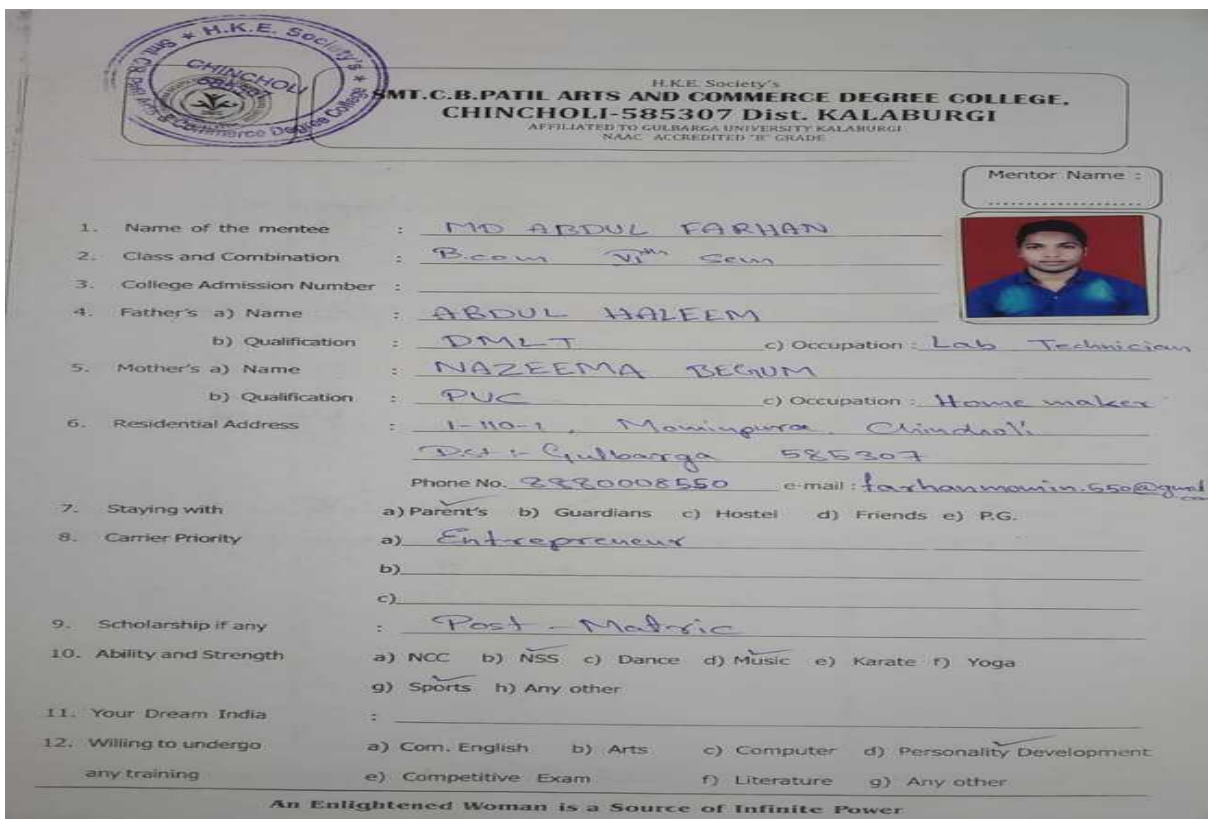 SMT. C.B. Patil Arts & Commerce Degree College
* H.K.E. Society's *
CHINCHOLI
585307
H.K.E. Society's
SMT.C.B.PATIL ARTS AND COMMERCE DEGREE COLLEGE,
CHINCHOLI-585307 Dist. KALABURGI
AFFILIATED TO GULBARGA UNIVERSITY KALABURGI
NAAC ACCREDITED "B" GRADE
Mentor Name :
....................
1. Name of the mentee : MD ABDUL FARHAN
2. Class and Combination : B.com VIth Sem
3. College Admission Number :
4. Father's a) Name : ABDUL HALEEM
b) Qualification : DMLT c) Occupation : Lab Technician
5. Mother's a) Name : NAZEEMA BEGUM
b) Qualification : PUC c) Occupation : Home maker
6. Residential Address : 1-110-1, Mominpura Chincholi
Dist :- Gulbarga 585307
Phone No. 8880008550 e-mail : farhanmomin.550@gmail
7. Staying with a) Parent's b) Guardians c) Hostel d) Friends e) P.G.
8. Carrier Priority a) Entrepreneur
b)
c)
9. Scholarship if any : Post - Matric
10. Ability and Strength a) NCC b) NSS c) Dance d) Music e) Karate f) Yoga
g) Sports h) Any other
11. Your Dream India :
12. Willing to undergo a) Com. English b) Arts c) Computer d) Personality Development
any training e) Competitive Exam f) Literature g) Any other
An Enlightened Woman is a Source of Infinite Power